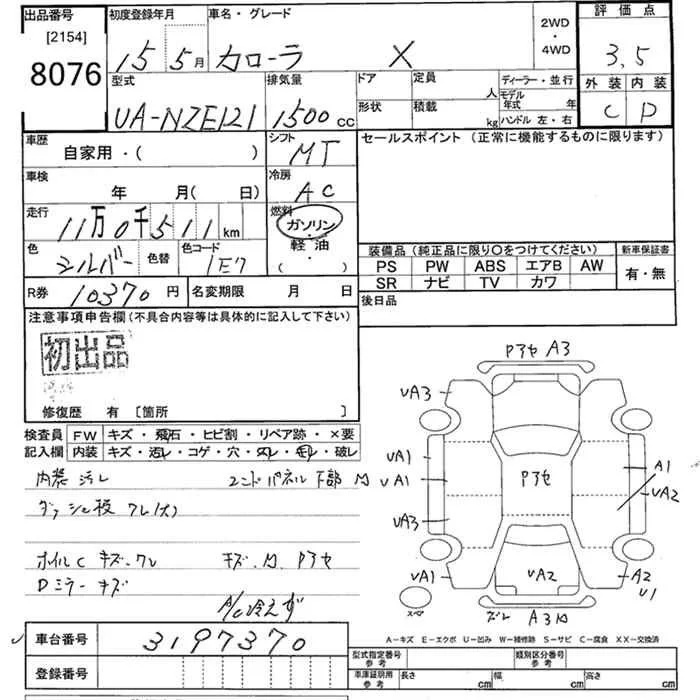 出品番号 初度登録年月 車名・グレード 2WD・4WD 評価点
[2154]
8076
15 5月 カローラ X 3.5
型式 排気量 ドア 定員 人 ディーラー・並行 外装 内装
形状 積載 kg モデル年式 年
ハンドル 左・右
UA-NZE121 1500cc C D
車歴 シフト セールスポイント (正常に機能するものに限ります)
自家用・( ) MT
車検 冷房
年 月(日) AC
走行 燃料
11万0千511km ガソリン
軽油
( )
色 色替 色コード
シルバー 1E7
装備品 (純正品に限り〇をつけてください) 新車保証書
PS PW ABS エアB AW 有・無
SR ナビ TV カワ
R券 10370円 名変期限 月 日
後日品
注意事項申告欄(不具合内容等は具体的に記入して下さい)
初出品
修復歴 有 [箇所 ]
検査員 FW キズ・飛石・ヒビ割・リペア跡・×要
記入欄 内装 キズ・汚レ・コゲ・穴・破レ
内装汚レ 2ンドパネル下部
ダッシュ板 ワレ(大)
ホイルC キズ、ワレ キズ、M、Pアセ
Dミラー キズ
A/C冷えず
車台番号 3197370
登録番号
Pアセ A3
UA3
UA1
UA1
UA3
UA1
Pアセ
A1
UA2
UA2
A2
U1
スペ
A3
A-キズ E-エクボ U-凹み W-補修跡 S-サビ C-腐食 XX-交換済
型式指定番号 参考 類別区分番号 参考
車庫証明用 参考 長さ cm 幅 cm 高さ cm